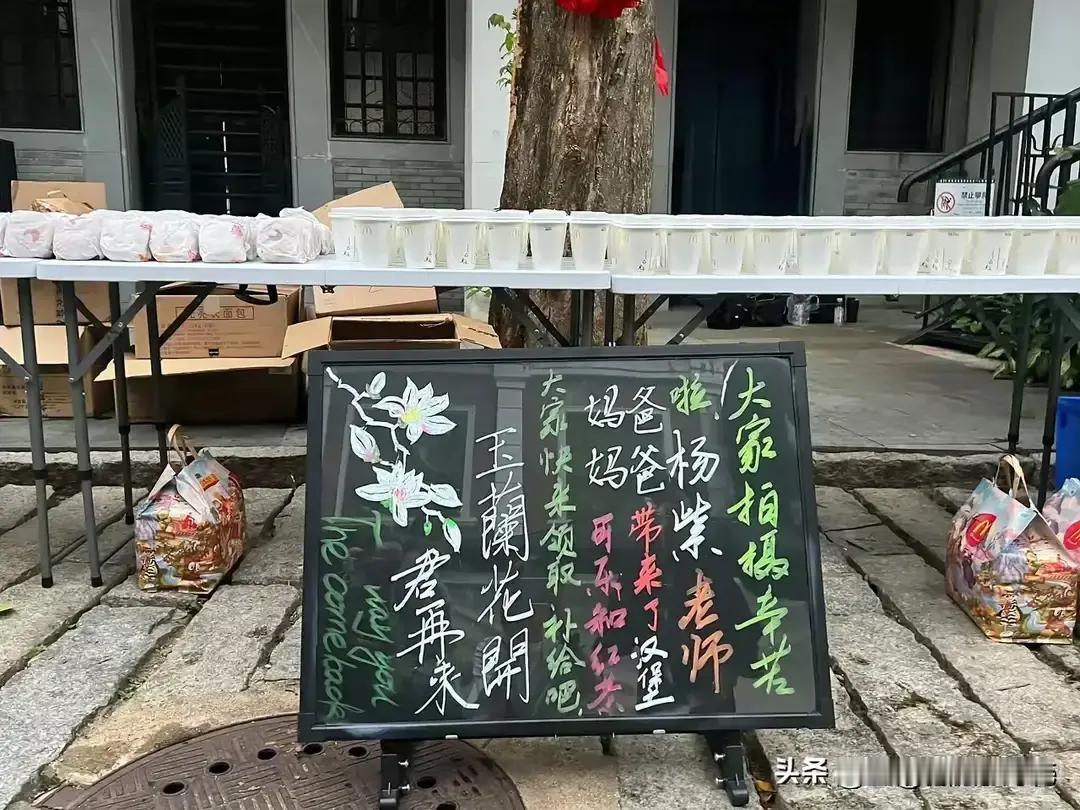 大家拍摄辛苦
啦！杨紫老师
爸爸帶来了汉堡
妈妈可乐和红茶
大家快来领取补给吧
玉蘭花開
君再来
I may you
The come back
禁止
面包
头条